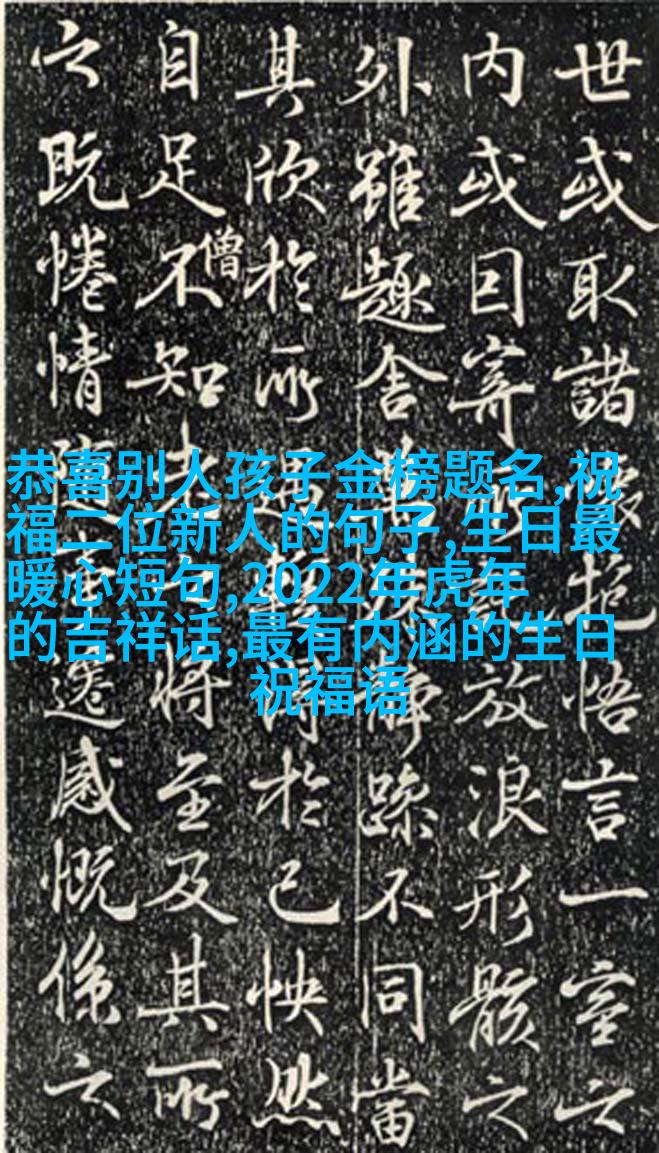 世或取諸抱悟言一室之
内或因寄放浪形骸之
外雖趣舍躁不同當
其欣於所遇得於己怏然
自足不知老將至及其所
僧
之既惓情遷感慨係之
恭喜别人孩子金榜题名,祝
福二位新人的句子,生日最
暖心短句,2022年虎年
的吉祥话,最有内涵的生日
祝福语